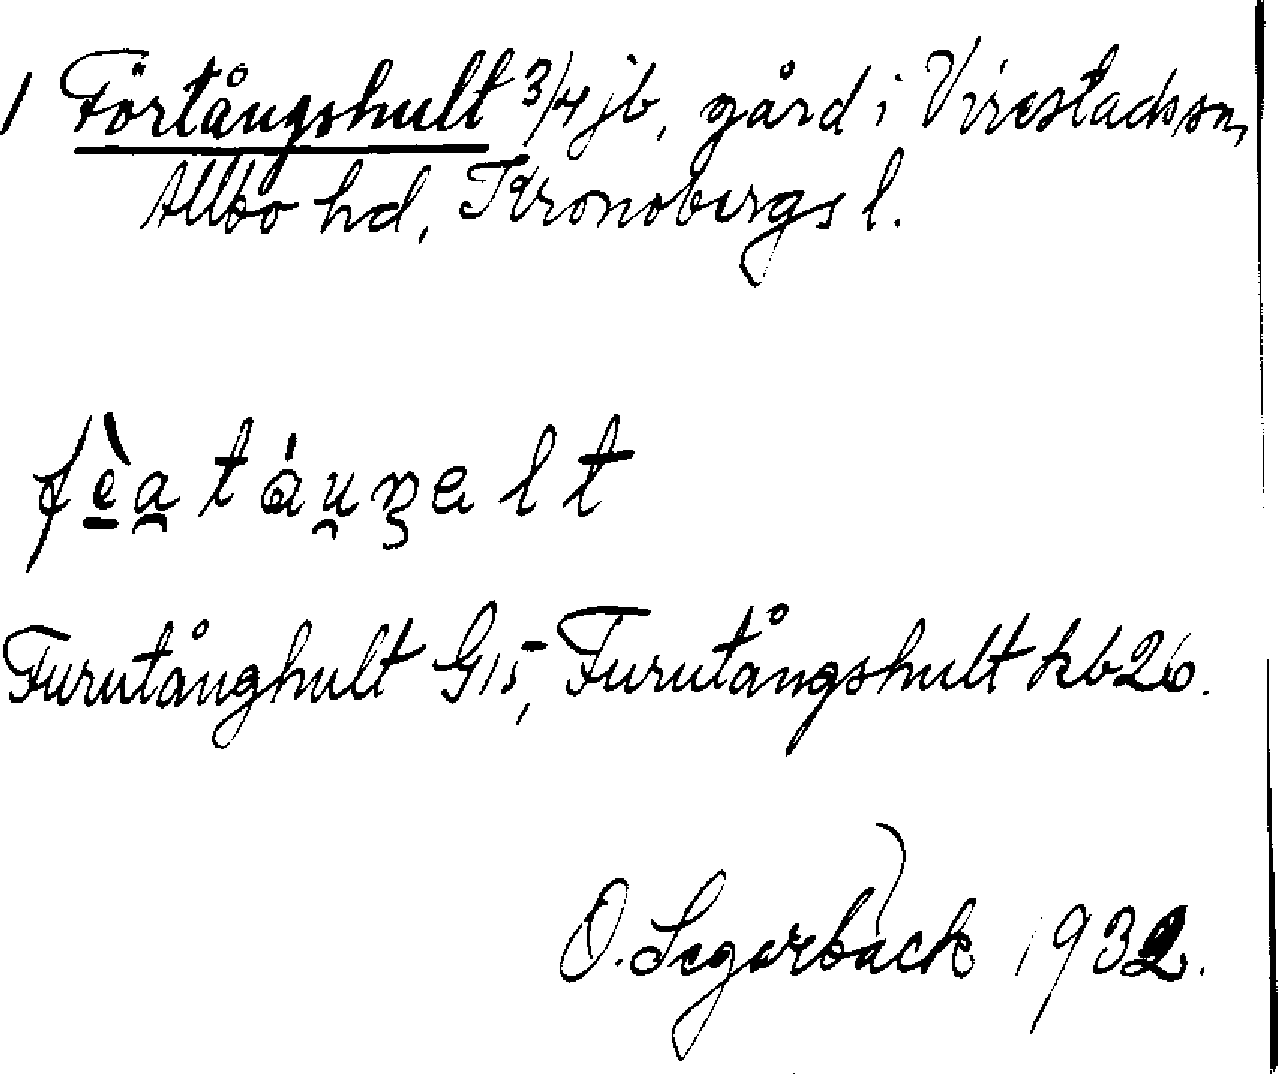 1 Förtångshult 3/4 jb, gård i Virestads sn,
Allbo hd, Kronobergs l.
fèa̯táu̯ŋelt
Furutånghult G15, Furutångshult kb26.
O. Segerbäck 1932.